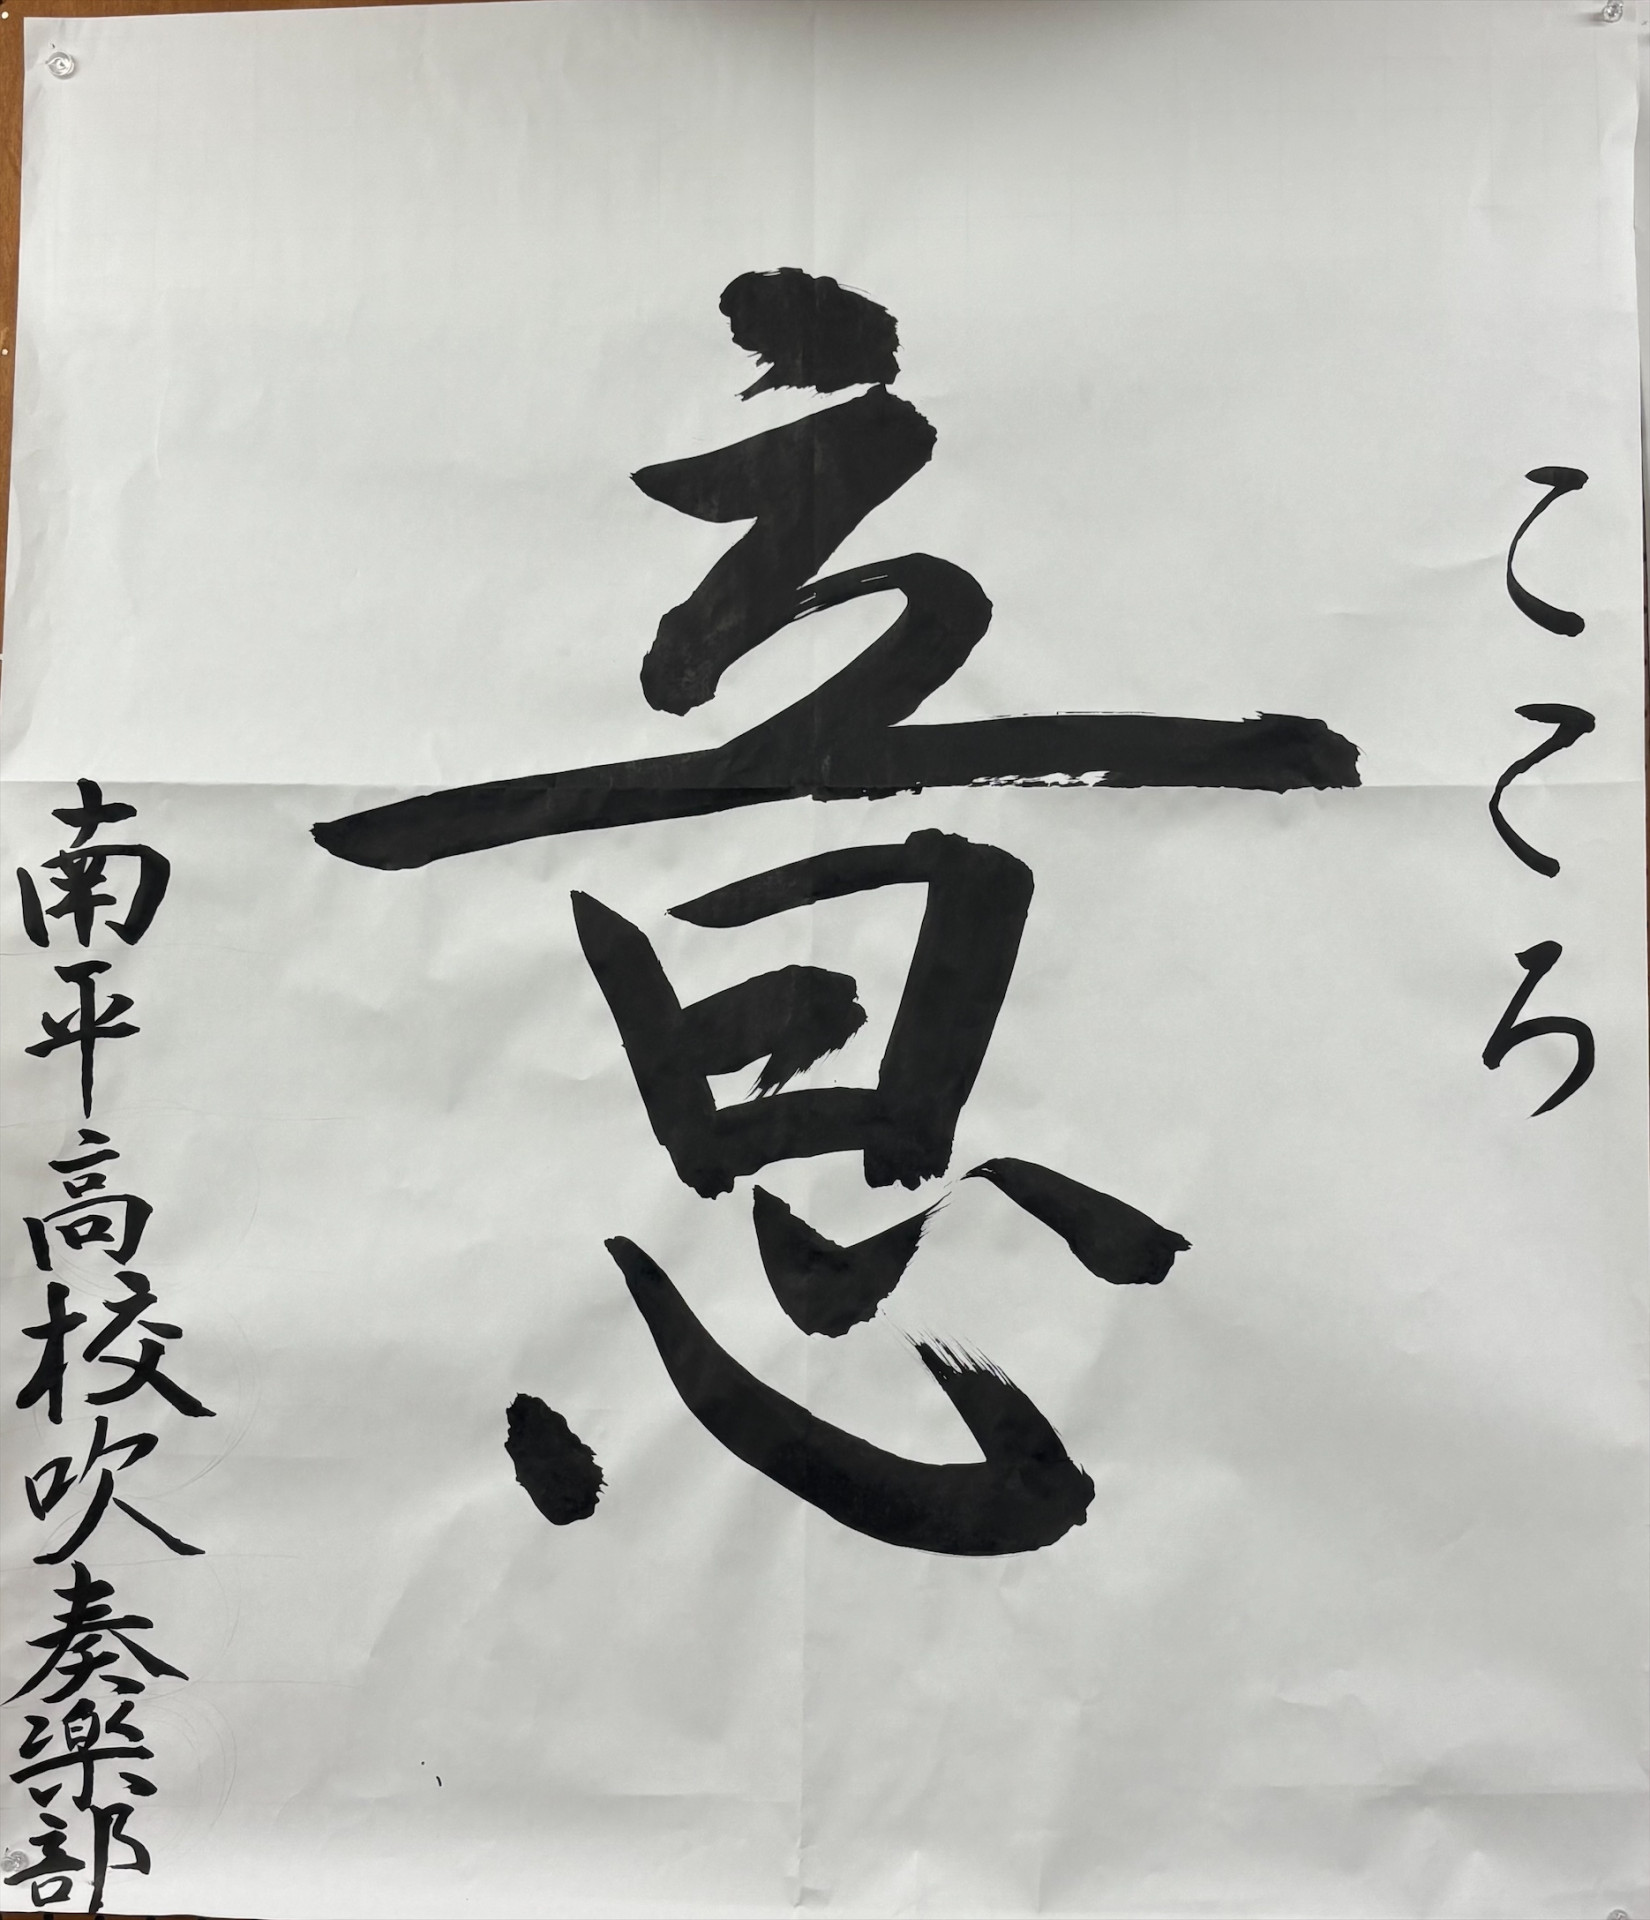 こころ
意
南平高校吹奏楽部